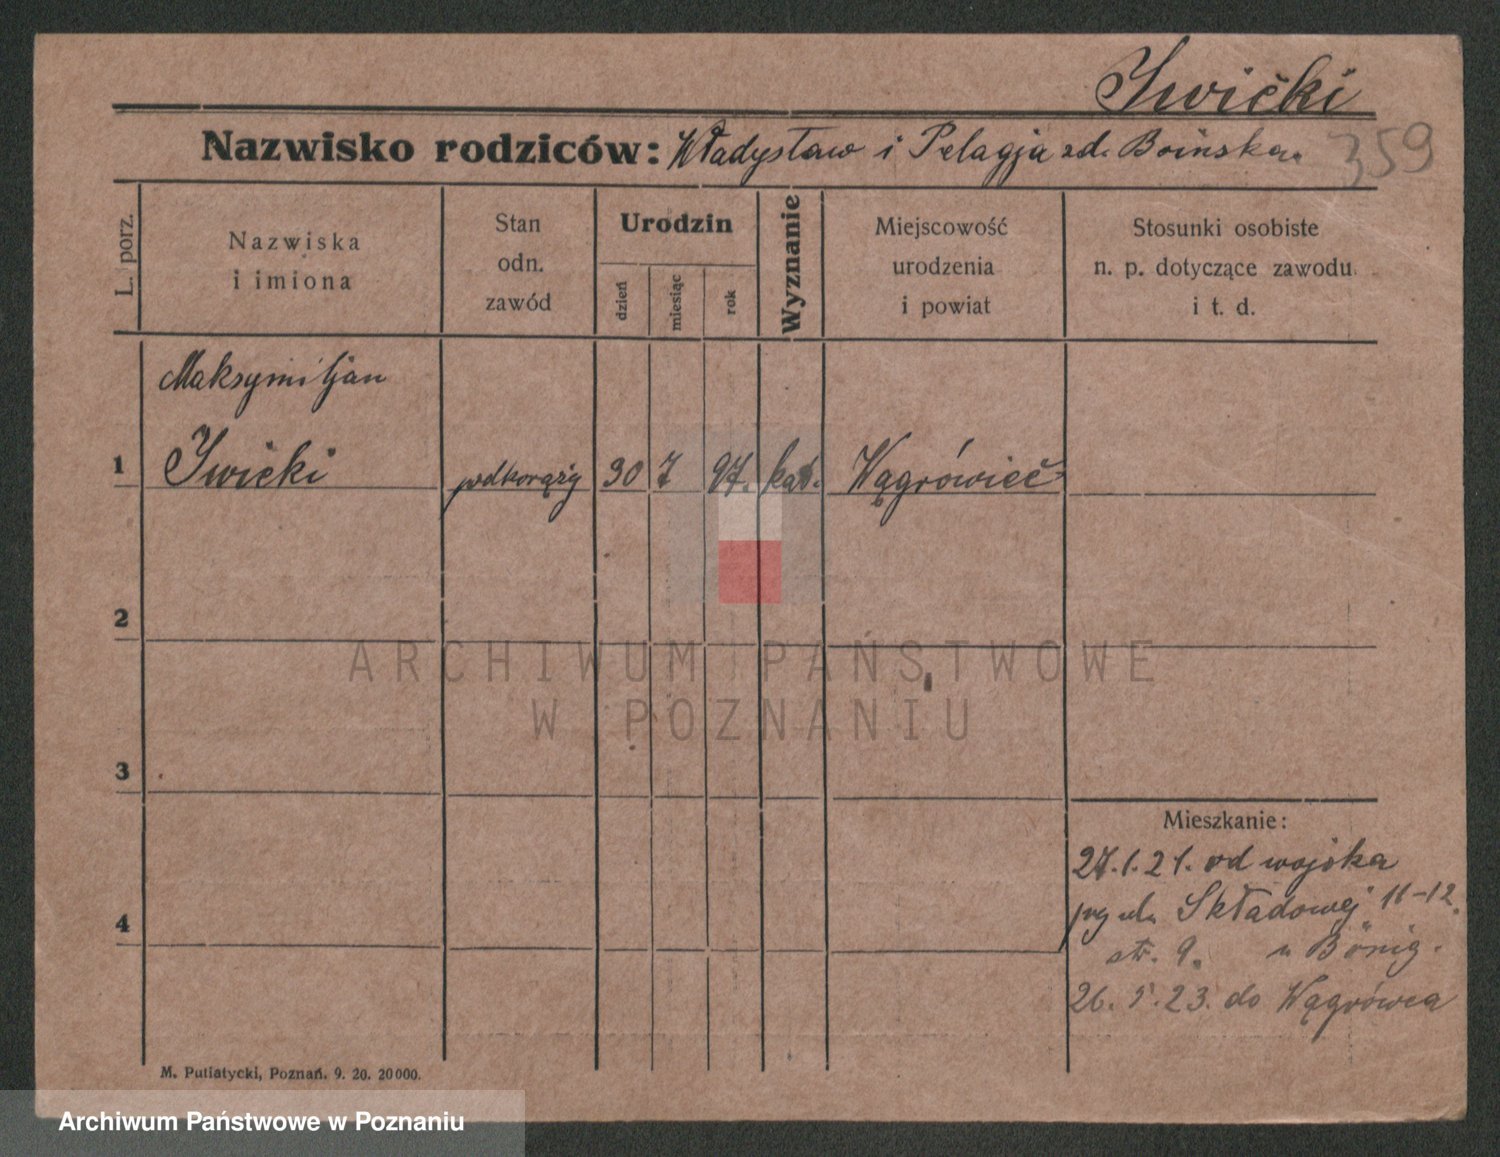 Iwicki
Nazwisko rodziców: Władysław i Pelagja zd. Boińska.
359
L. porz.
Nazwiska
i imiona
Stan
odn.
zawód
Urodzin
dzień
miesiąc
rok
Wyznanie
Miejscowość
urodzenia
i powiat
Stosunki osobiste
n. p. dotyczące zawodu
i t. d.
Maksymiljan
1 Iwicki podkorąży 30 7 97. kat. Wągrówiec
2
3
4
Mieszkanie:
27.1.21. od wojska
ul. Składowej 11-12.
str. 9. u Bönig.
26.5.23. do Wągrówca
M. Putiatycki, Poznań. 9. 20. 20000.
ARCHIWUM PAŃSTWOWE
W POZNANIU
Archiwum Państwowe w Poznaniu